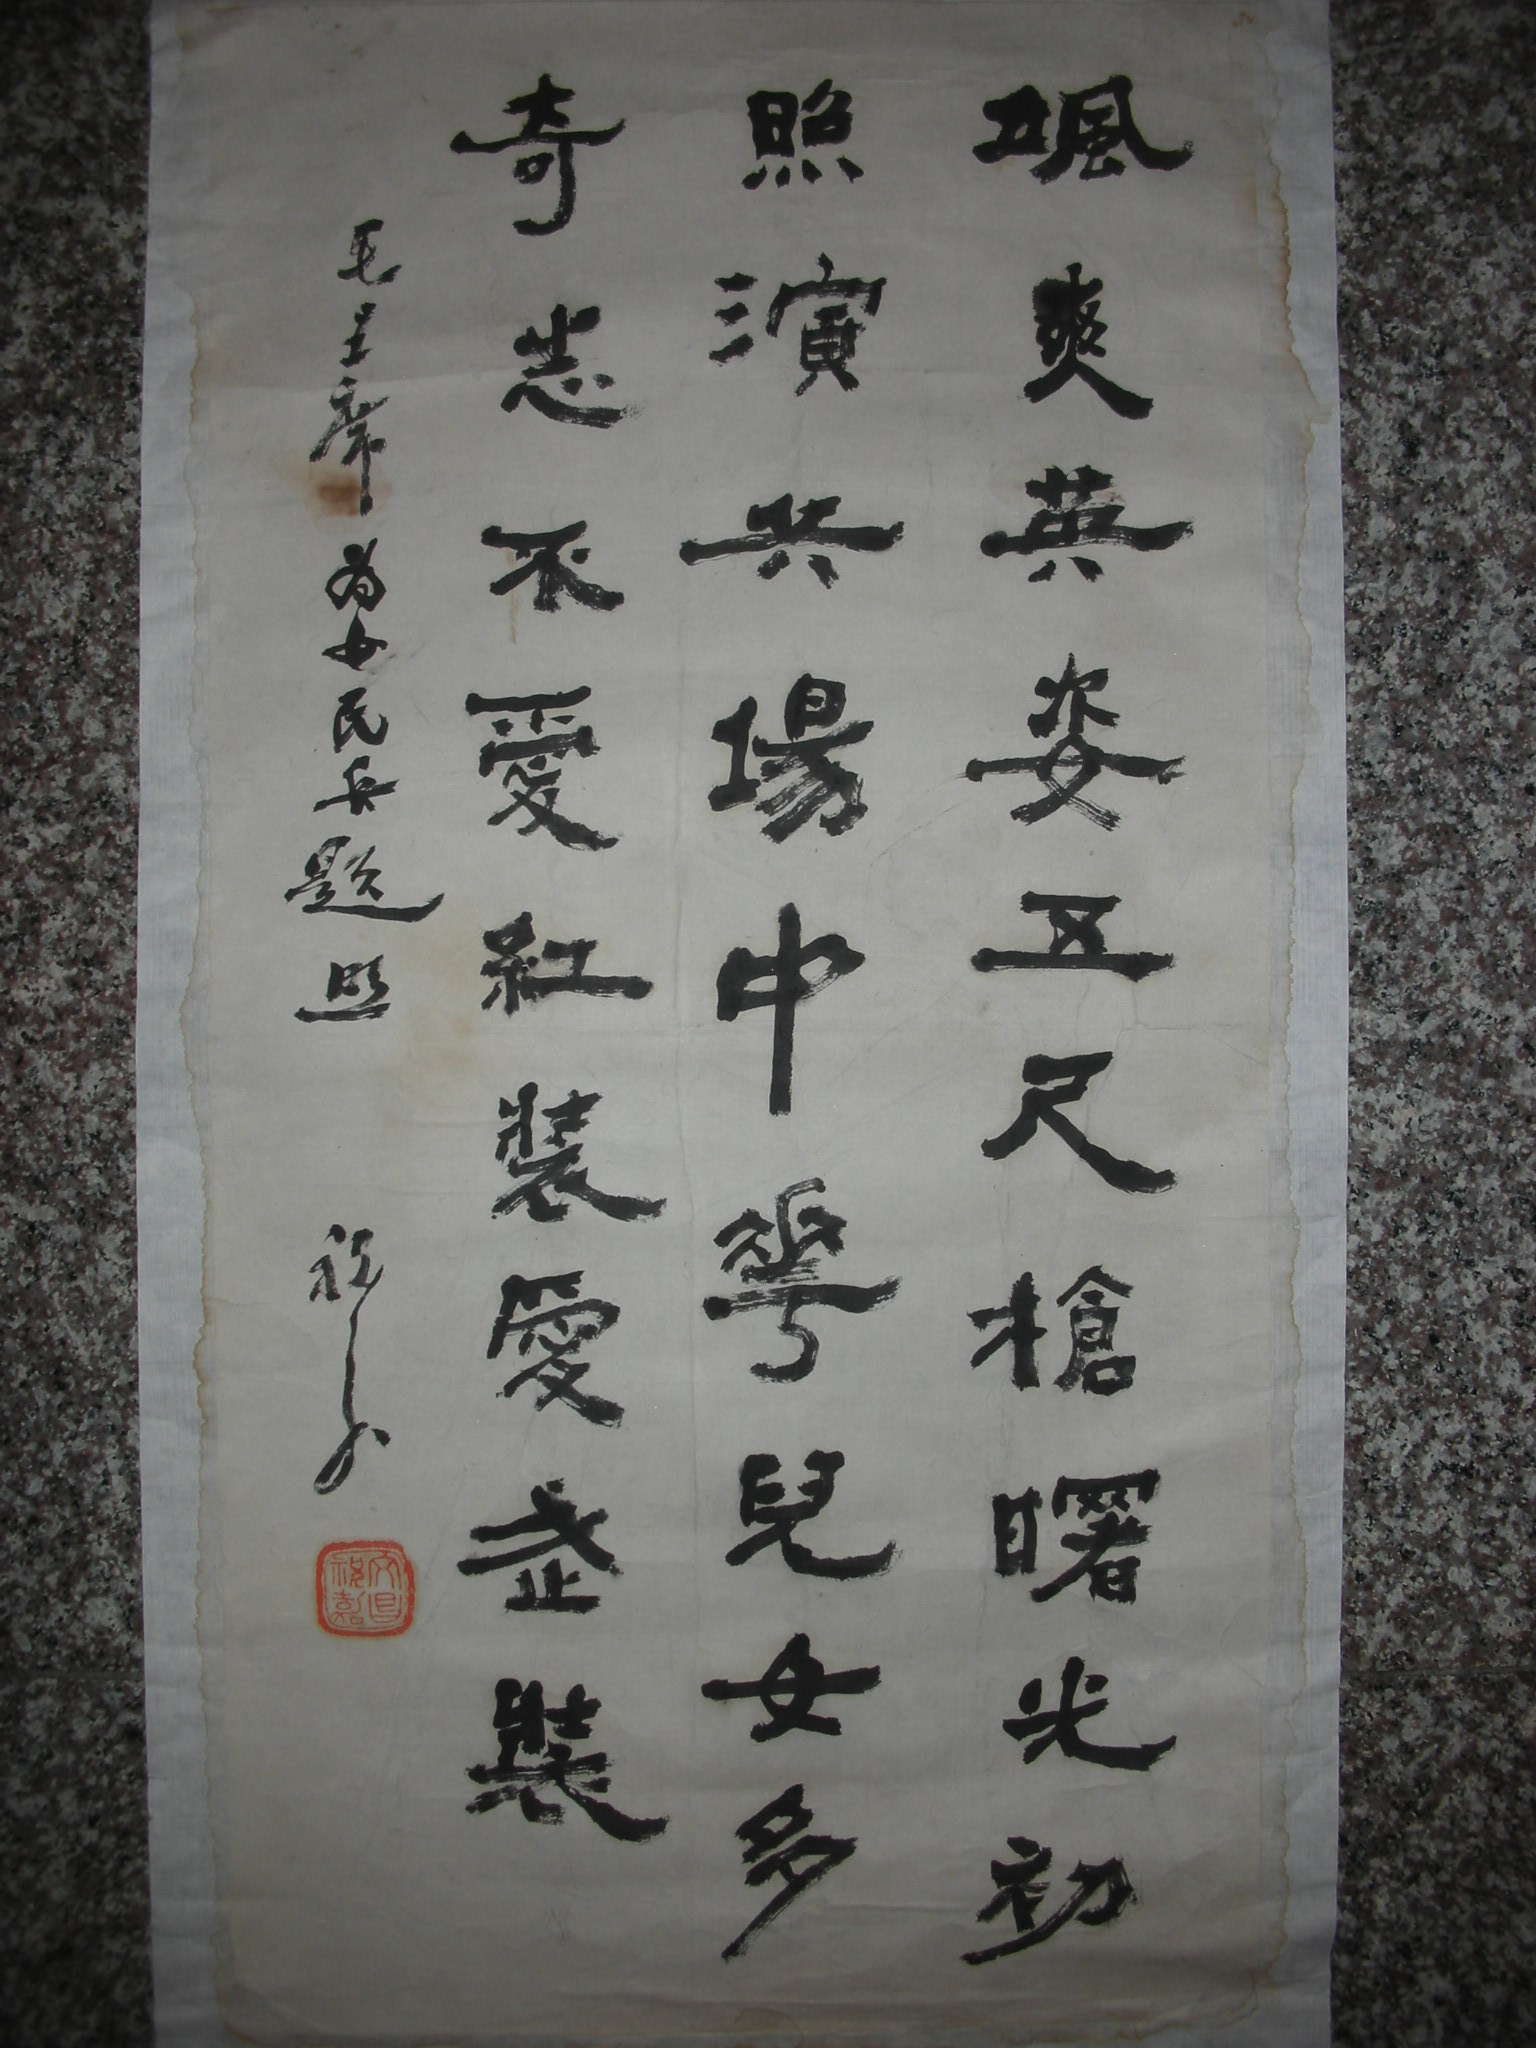 颯爽英姿五尺槍曙光初
照演兵場中華兒女多
奇志不愛紅裝愛武裝
毛主席為女民兵題照
祝嘉
祝嘉